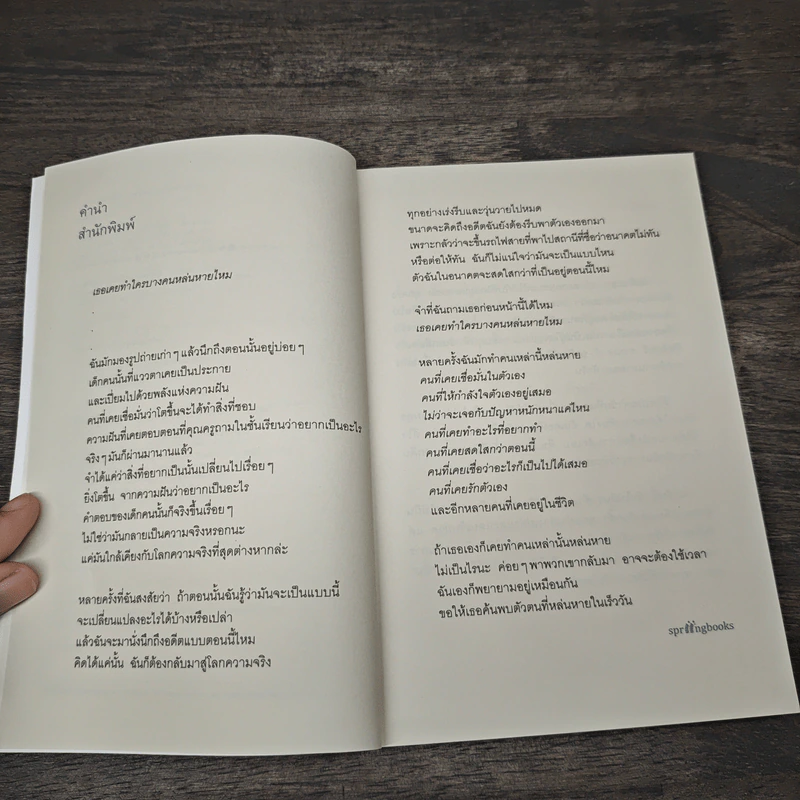 คำนำ
สำนักพิมพ์
เธอเคยทำใครบางคนหล่นหายไหม
.
.
.
ฉันมักมองรูปถ่ายเก่าๆ แล้วนึกถึงตอนนั้นอยู่บ่อยๆ
เด็กคนนั้นที่แววตาเคยเป็นประกาย
และเปี่ยมไปด้วยพลังแห่งความฝัน
คนที่เคยเชื่อมั่นว่าโตขึ้นจะได้ทำสิ่งที่ชอบ
ความฝันที่เคยตอบตอนที่คุณครูถามในชั้นเรียนว่าอยากเป็นอะไร
จริงๆ มันก็ผ่านมานานแล้ว
จำได้แค่ว่าสิ่งที่อยากเป็นนั้นเปลี่ยนไปเรื่อยๆ
ยิ่งโตขึ้น จากความฝันว่าอยากเป็นอะไร
คำตอบของเด็กคนนั้นก็จริงขึ้นเรื่อยๆ
ไม่ใช่ว่ามันกลายเป็นความจริงหรอกนะ
แค่มันใกล้เคียงกับโลกความจริงที่สุดต่างหากล่ะ
หลายครั้งที่ฉันสงสัยว่า ถ้าตอนนั้นฉันรู้ว่ามันจะเป็นแบบนี้
จะเปลี่ยนแปลงอะไรได้บ้างหรือเปล่า
แล้วฉันจะมานั่งนึกถึงอดีตแบบตอนนี้ไหม
คิดได้แค่นั้น ฉันก็ต้องกลับมาสู่โลกความจริง
ทุกอย่างเร่งรีบและวุ่นวายไปหมด
ขนาดจะคิดถึงอดีตฉันยังต้องรีบพาตัวเองออกมา
เพราะกลัวว่าจะขึ้นรถไฟสายที่พาไปสถานีที่ชื่อว่าอนาคตไม่ทัน
หรือต่อให้ทัน ฉันก็ไม่แน่ใจว่ามันจะเป็นแบบไหน
ตัวฉันในอนาคตจะสดใสกว่าที่เป็นอยู่ตอนนี้ไหม
จำที่ฉันถามเธอก่อนหน้านี้ได้ไหม
เธอเคยทำใครบางคนหล่นหายไหม
หลายครั้งฉันมักทำคนเหล่านี้หล่นหาย
คนที่เคยเชื่อมั่นในตัวเอง
คนที่ให้กำลังใจตัวเองอยู่เสมอ
ไม่ว่าจะเจอกับปัญหาหนักหนาแค่ไหน
คนที่เคยทำอะไรที่อยากทำ
คนที่เคยสดใสกว่าตอนนี้
คนที่เคยเชื่อว่าอะไรก็เป็นไปได้เสมอ
คนที่เคยรักตัวเอง
และอีกหลายคนที่เคยอยู่ในชีวิต
ถ้าเธอเองก็เคยทำคนเหล่านั้นหล่นหาย
ไม่เป็นไรนะ ค่อยๆ พาพวกเขากลับมา อาจจะต้องใช้เวลา
ฉันเองก็พยายามอยู่เหมือนกัน
ขอให้เธอค้นพบตัวตนที่หล่นหายในเร็ววัน
springbooks